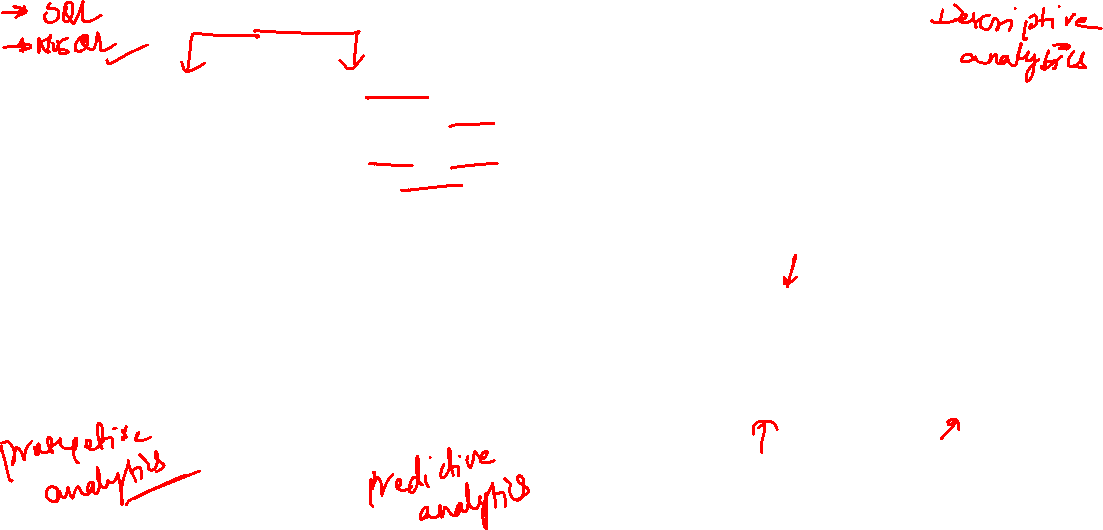 → SQL
→ NoSQL
Descriptive
analytics
analytics
predictive
analytics